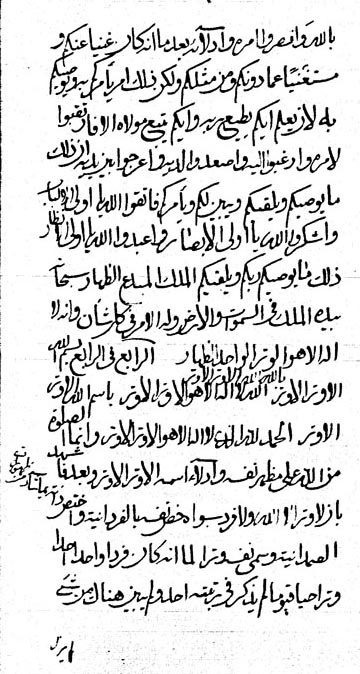 بالله وانصروا امره وادلاء يعد ما انه كان غنيا عنكم و
مستغنيا عما دونكم ومن مثلكم ولكن ذلك امر يأمركم به ويوصيكم
به لان يعلم ايكم يطيع ربه وايكم يتبع مولاه الا فارتقبوا
لامره وارغبوا اليه واصعدوا لديه واعرجوا بين يديه ان ذلك
ما يوصيكم ويلقيكم ويبين لكم ويأمركم فاتقوا الله يا اولى الالباب
واشكروا الله يا اولى الابصار فاعبدوا الله يا اولى الانظار
ذلك ما يوصيكم ربكم ويلقيكم الملك المبدع الظهار سبحان
بيده الملك في السموات والارض وله الامر في كل شأن وانه لا
اله الا هو الوتر الواحد الظهار الرابع في الرابع بسم الله
الاوتر الاوتر بالله الله الاوتر الاوتر الله لا اله الا هو الاوتر الاوتر باسم الله الاوتر
الاوتر الحمد لله الذى لا اله الا هو الاوتر الاوتر وانما الصلوة
من الله على مظهر نفسه وادلاء اسمه الاوتر الاوتر وبعد فاشهد
بان لا وتر الا الله ولا فرد سواه خص نفسه بالفردانية واختص ذاته
الصمدانية وسمى نفسه وترا لما انه كان فردا واحدا احدا
وترا حيا قيوما لم يذكر في رتبته احد ولم يبن هناك من شئ